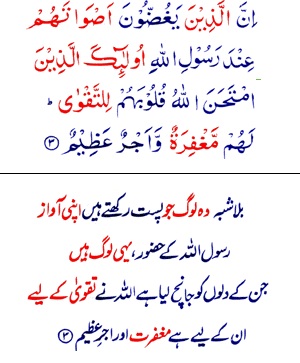 اِنَّ الَّذِيْنَ يَغُضُّوْنَ اَصْوَاتَهُمْ
عِنْدَ رَسُوْلِ اللّٰهِ اُولٰٓئِكَ الَّذِيْنَ
امْتَحَنَ اللّٰهُ قُلُوْبَهُمْ لِلتَّقْوٰى ؕ
لَهُمْ مَّغْفِرَةٌ وَّاَجْرٌ عَظِيْمٌ ۝۳
بلاشبہ وہ لوگ جو پست رکھتے ہیں اپنی آواز
رسول اللہ کے حضور، یہی لوگ ہیں
جن کے دلوں کو جانچ لیا ہے اللہ نے تقویٰ کے لیے
ان کے لیے ہے مغفرت اور اجرِ عظیم ۝۳